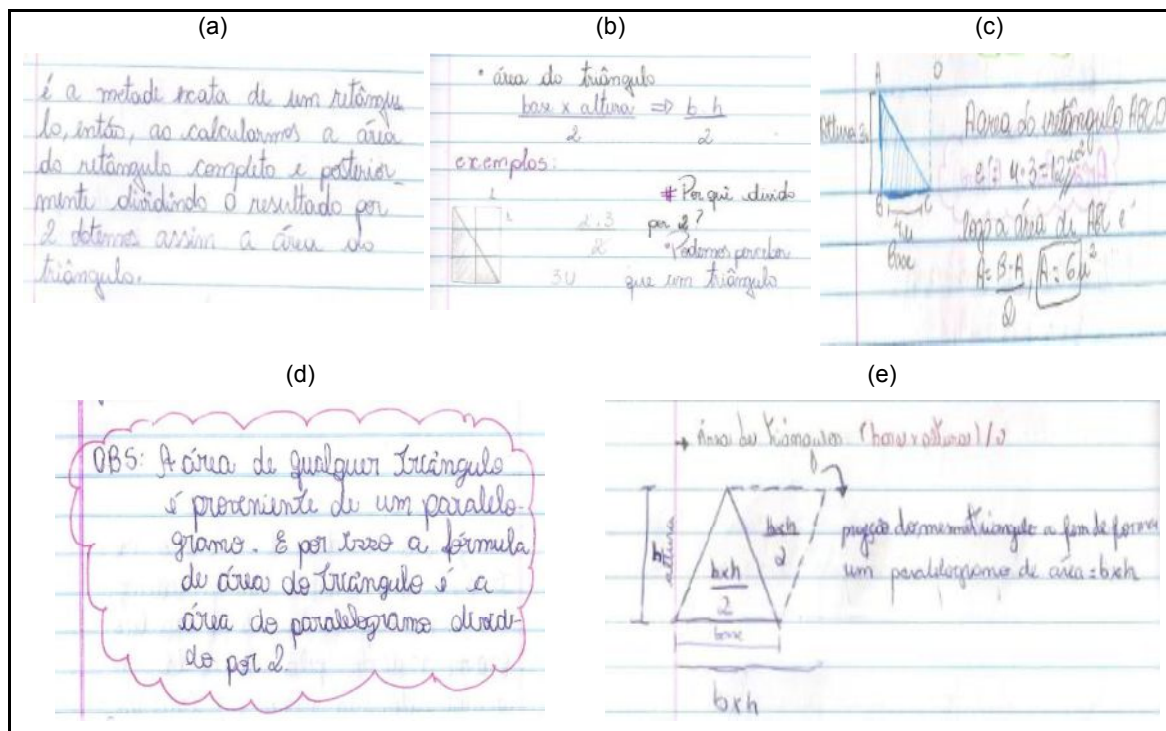 (a)
é a metade exata de um retângu
lo, então, ao calcularmos a área
do retângulo completo e posterior-
mente dividindo o resultado por
2 obtemos assim a área do
triângulo.
(b)
• área do triângulo
base x altura ⇒ b.h
2 2
exemplos:
# Por quê divido
por 2?
2.3
2
Podemos perceber
3u que um triângulo
(c)
A D
altura 3u
A área do retângulo ABCD
é: 4.3=12
B C
4u
base
logo a área de ABC é
A= B.A
2
A=6u²
(d)
OBS: A área de qualquer triângulo
é proveniente de um paralelo-
gramo. E por isso a fórmula
de área do triângulo é a
área do paralelogramo dividi-
do por 2.
(e)
→ Área dos triângulos (base x altura)/2
h
altura
bxh
2
bxh
2
base
bxh
do mesmo triangulo a fim de formar
um paralelogramo de área = bxh